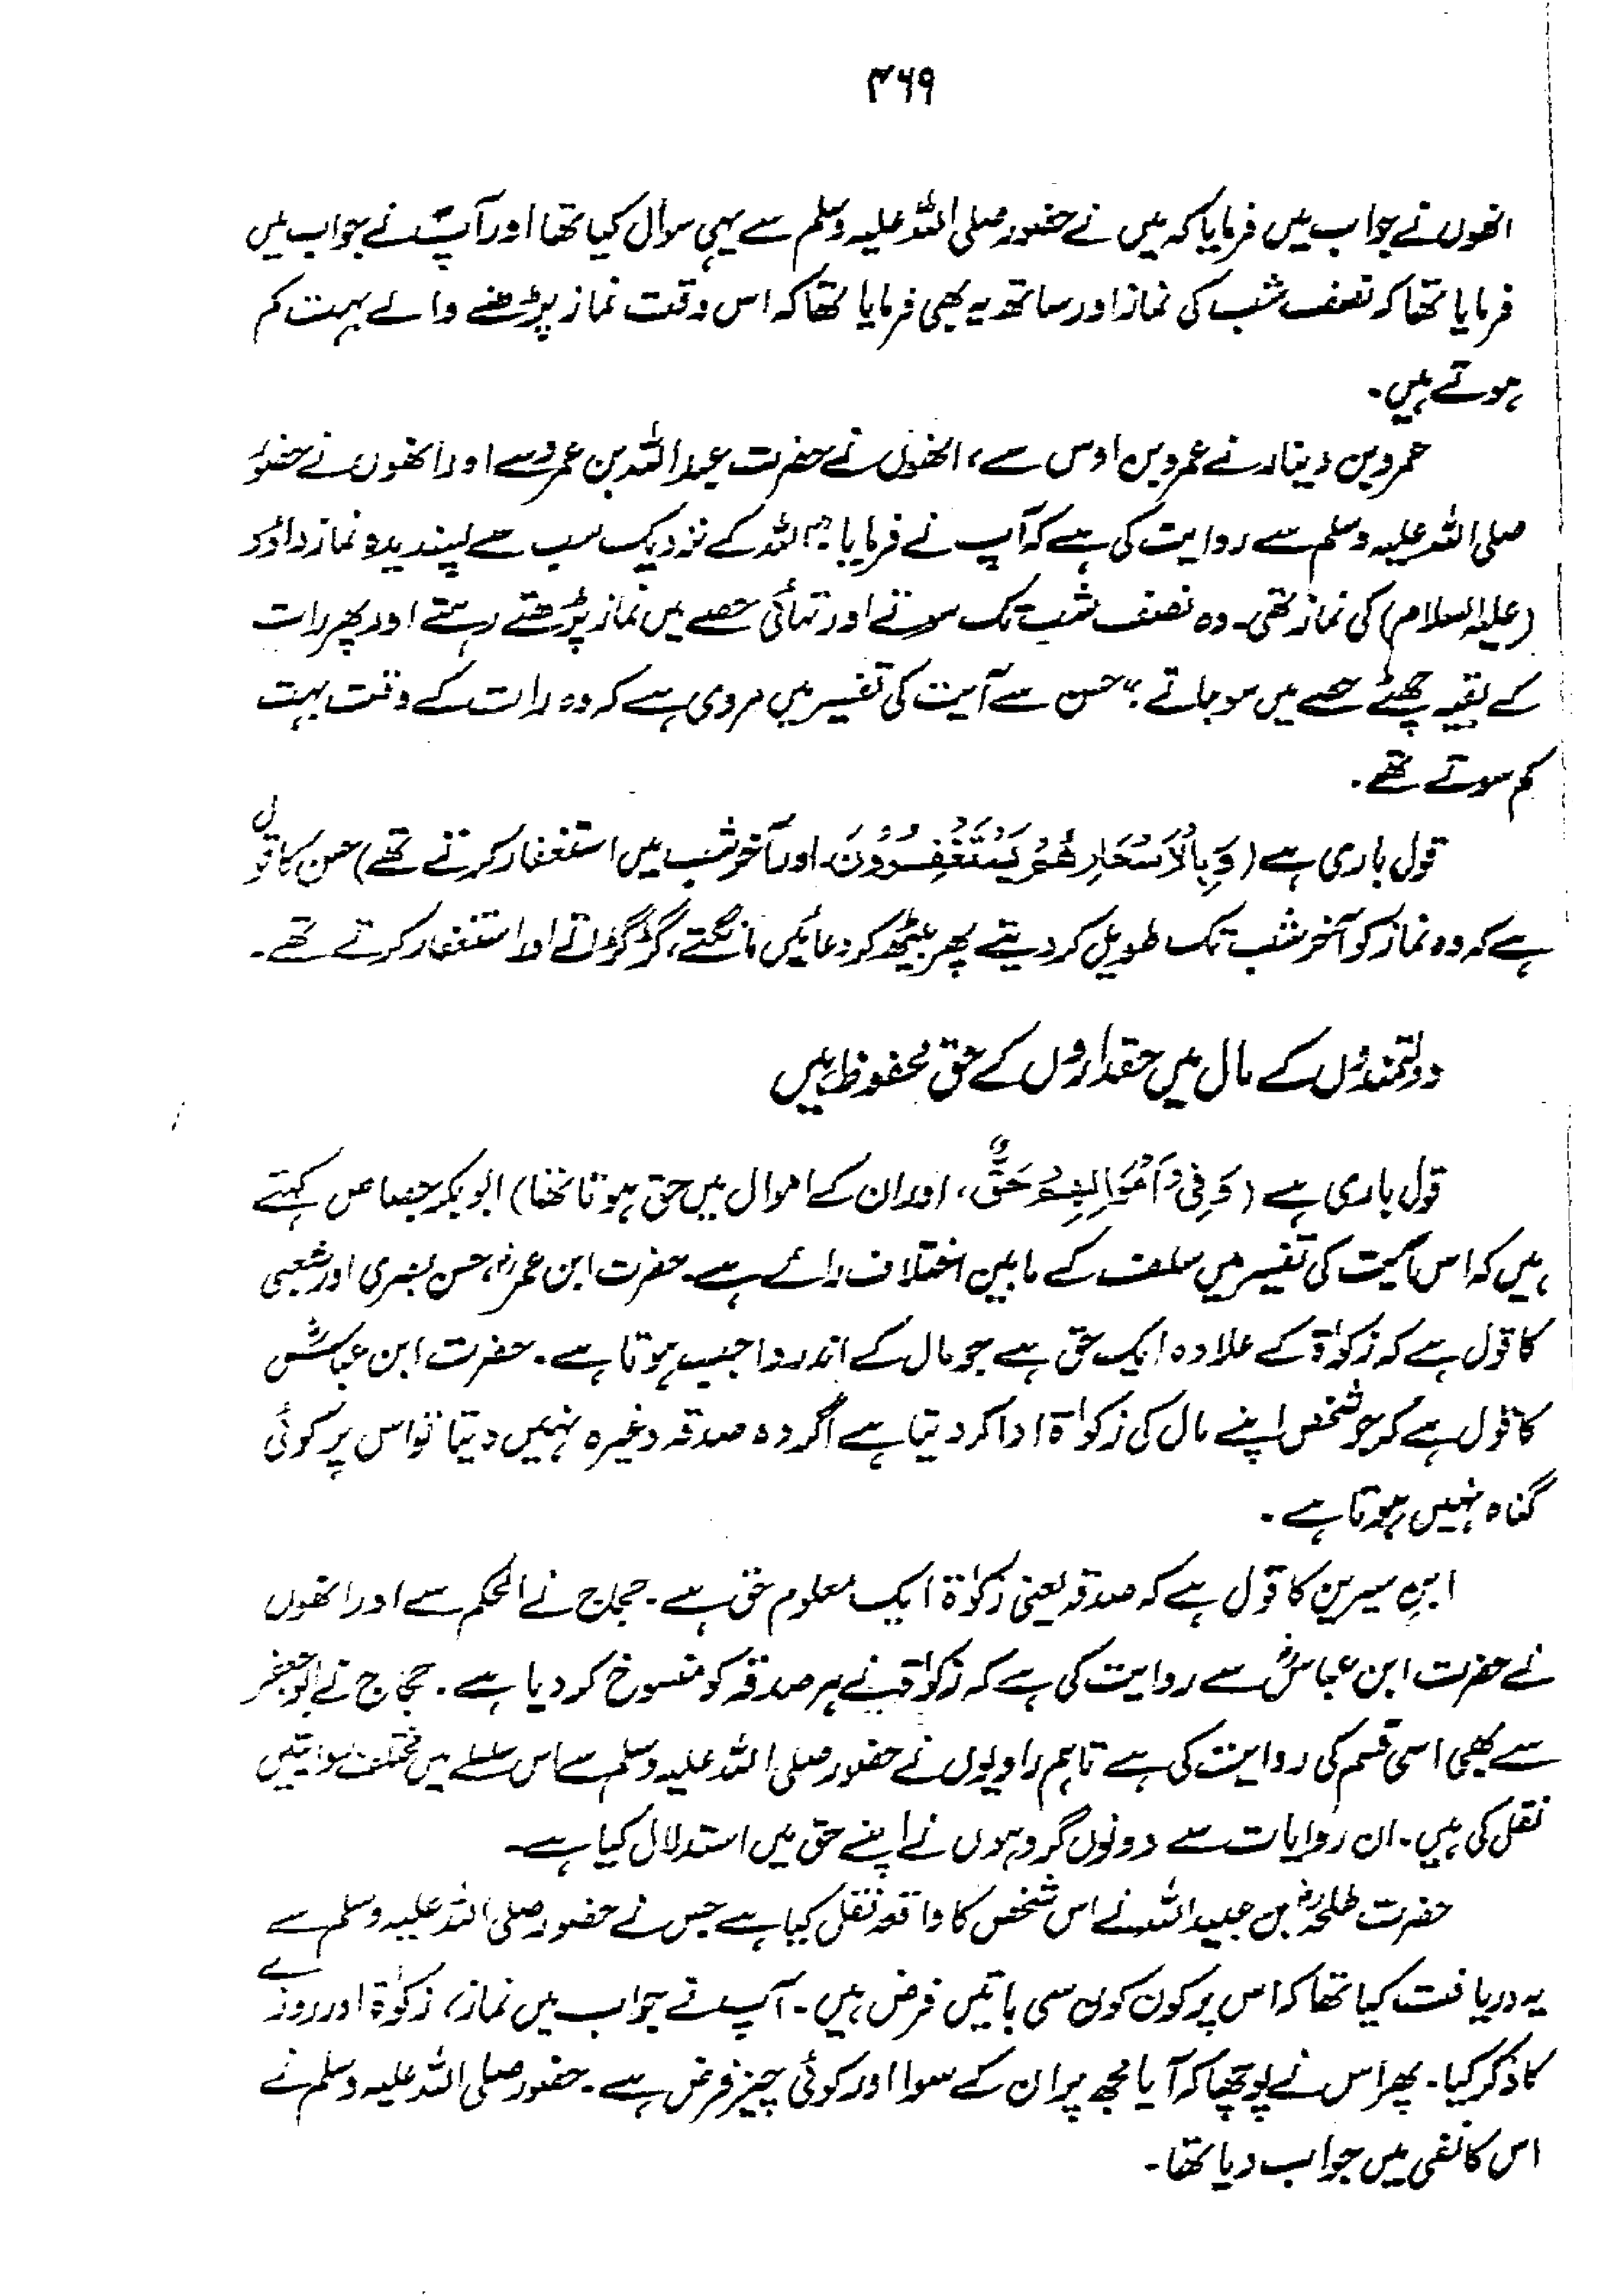 ۴۶۹
انھوں نے جواب میں فرمایا کہ میں نے حضور صلی اللہ علیہ وسلم سے یہی سوال کیا تھا اور آپؐ نے جواب میں
فرمایا تھا کہ نصف شب کی نماز اور ساتھ یہ بھی فرمایا تھا کہ اس وقت نماز پڑھنے والے بہت کم
ہوتے ہیں۔
عمرو بن دینار نے عمرو بن اوس سے، انھوں نے حضرت عبداللہ بن عمرو سے اور انھوں نے حضور
صلی اللہ علیہ وسلم سے روایت کی ہے کہ آپ نے فرمایا "اللہ کے نزدیک سب سے پسندیدہ نماز داؤد
(علیہ السلام) کی نماز تھی۔ وہ نصف شب تک سوتے اور تہائی حصے میں نماز پڑھتے رہتے اور پھر رات
کے بقیہ چھٹے حصے میں سو جاتے" حسن سے آیت کی تفسیر میں مروی ہے کہ وہ رات کے وقت بہت
کم سوتے تھے۔
قول باری ہے (وَبِالْاَسْحَارِ هُمْ يَسْتَغْفِرُوْنَ، اور آخر شب میں استغفار کرتے تھے) حسن کا قول
ہے کہ وہ نماز کو آخر شب تک طویل کر دیتے پھر بیٹھ کر دعائیں مانگتے، گڑگڑاتے اور استغفار کرتے تھے۔
دولتمندوں کے مال میں حقداروں کے حق محفوظ ہیں
قول باری ہے (وَفِيْ اَمْوَالِهِمْ حَقٌّ، اور ان کے اموال میں حق ہوتا تھا) ابوبکر جصاص کہتے
ہیں کہ اس آیت کی تفسیر میں سلف کے مابین اختلاف رائے ہے۔ حضرت ابن عمرؓ، حسن بصری اور شعبی
کا قول ہے کہ زکوٰۃ کے علاوہ ایک حق ہے جو مال کے اندر واجب ہوتا ہے۔ حضرت ابن عباسؓ
کا قول ہے کہ جو شخص اپنے مال کی زکوٰۃ ادا کر دیتا ہے اگر وہ صدقہ وغیرہ نہیں دیتا تو اس پر کوئی
گناہ نہیں ہوتا ہے۔
ابن سیرین کا قول ہے کہ صدقہ یعنی زکوٰۃ ایک معلوم حق ہے۔ حجاج نے الحکم سے اور انھوں
نے حضرت ابن عباسؓ سے روایت کی ہے کہ زکوٰۃ نے ہر صدقہ کو منسوخ کر دیا ہے۔ حجاج نے ابوجعفر
سے بھی اسی قسم کی روایت کی ہے تاہم راویوں نے حضور صلی اللہ علیہ وسلم سے اس سلسلے میں مختلف روایتیں
نقل کی ہیں۔ ان روایات سے دونوں گروہوں نے اپنے حق میں استدلال کیا ہے۔
حضرت طلحہؓ بن عبیداللہ نے اس شخص کا واقعہ نقل کیا ہے جس نے حضور صلی اللہ علیہ وسلم سے
یہ دریافت کیا تھا کہ اس پر کون کون سی باتیں فرض ہیں۔ آپ نے جواب میں نماز، زکوٰۃ اور روزے
کا ذکر کیا۔ پھر اس نے پوچھا کہ آیا مجھ پر ان کے سوا اور کوئی چیز فرض ہے۔ حضور صلی اللہ علیہ وسلم نے
اس کا نفی میں جواب دیا تھا۔